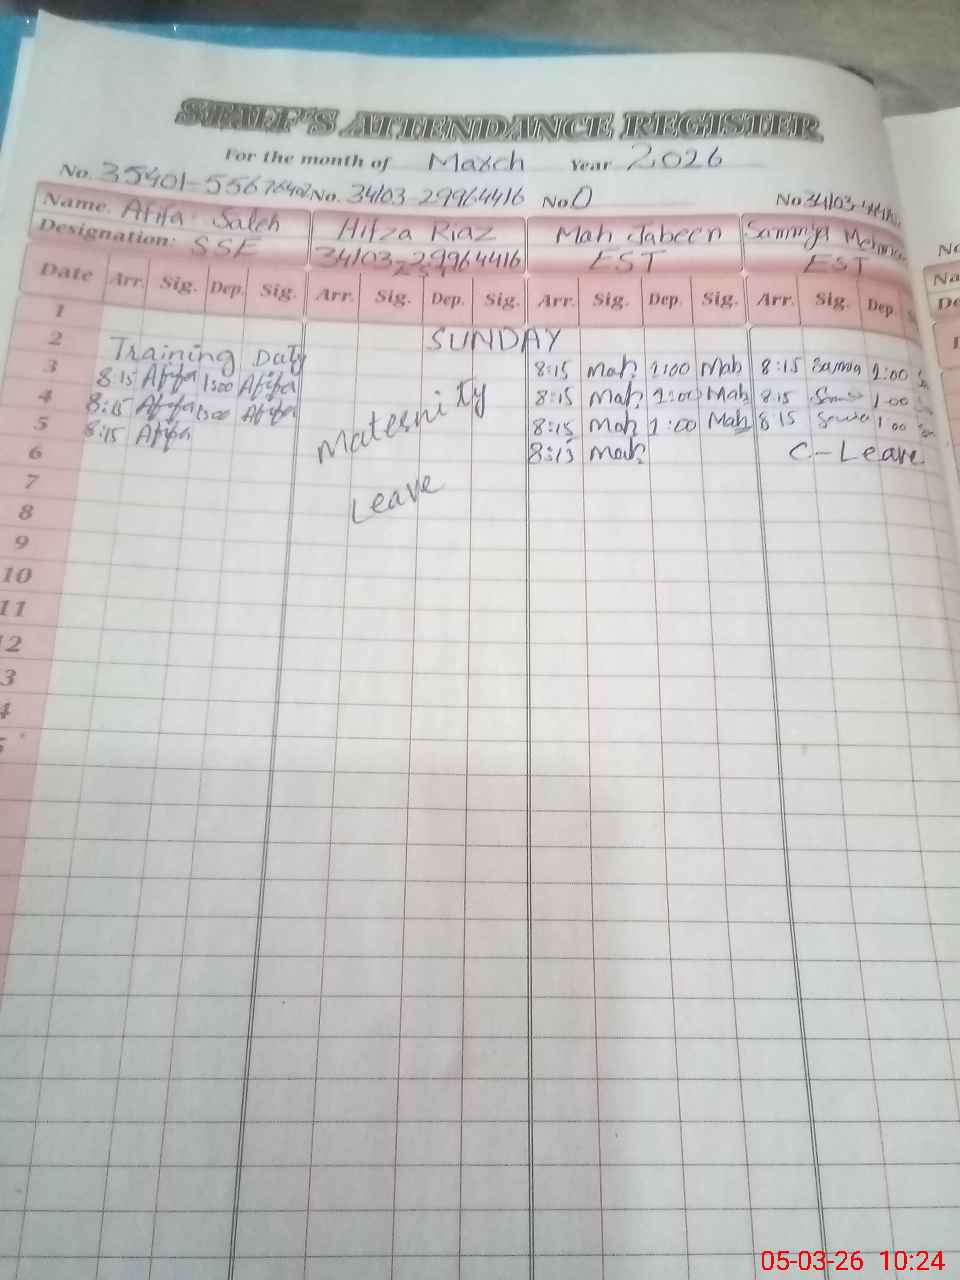 STAFF'S ATTENDANCE REGISTER
For the month of March Year 2026
No. 35401-5567640 No. 34103-29964416 No. 0 No 34103
Name. Afifa Saleh Hifza Riaz Mah Jabeen Sammya
Designation: SSE 34103-29964416 EST EST
EST
Date Arr. Sig. Dep. Sig. Arr. Sig. Dep. Sig. Arr. Sig. Dep. Sig. Arr. Sig. Dep.
1 SUNDAY
2 Training Duty 8:15 Mah 1:00 Mah 8:15 Samia 1:00
3 8:15 Afifa 1:00 Afifa 8:15 Mah 1:00 Mah 8:15 1:00
4 8:15 Afifa 1:00 Afifa 8:15 Mah 1:00 Mah 8:15 1:00
5 8:15 Afifa 8:15 Mah C-Leave
Maternity
Leave
6
7
8
9
10
11
12
3
4
5
05-03-26 10:24